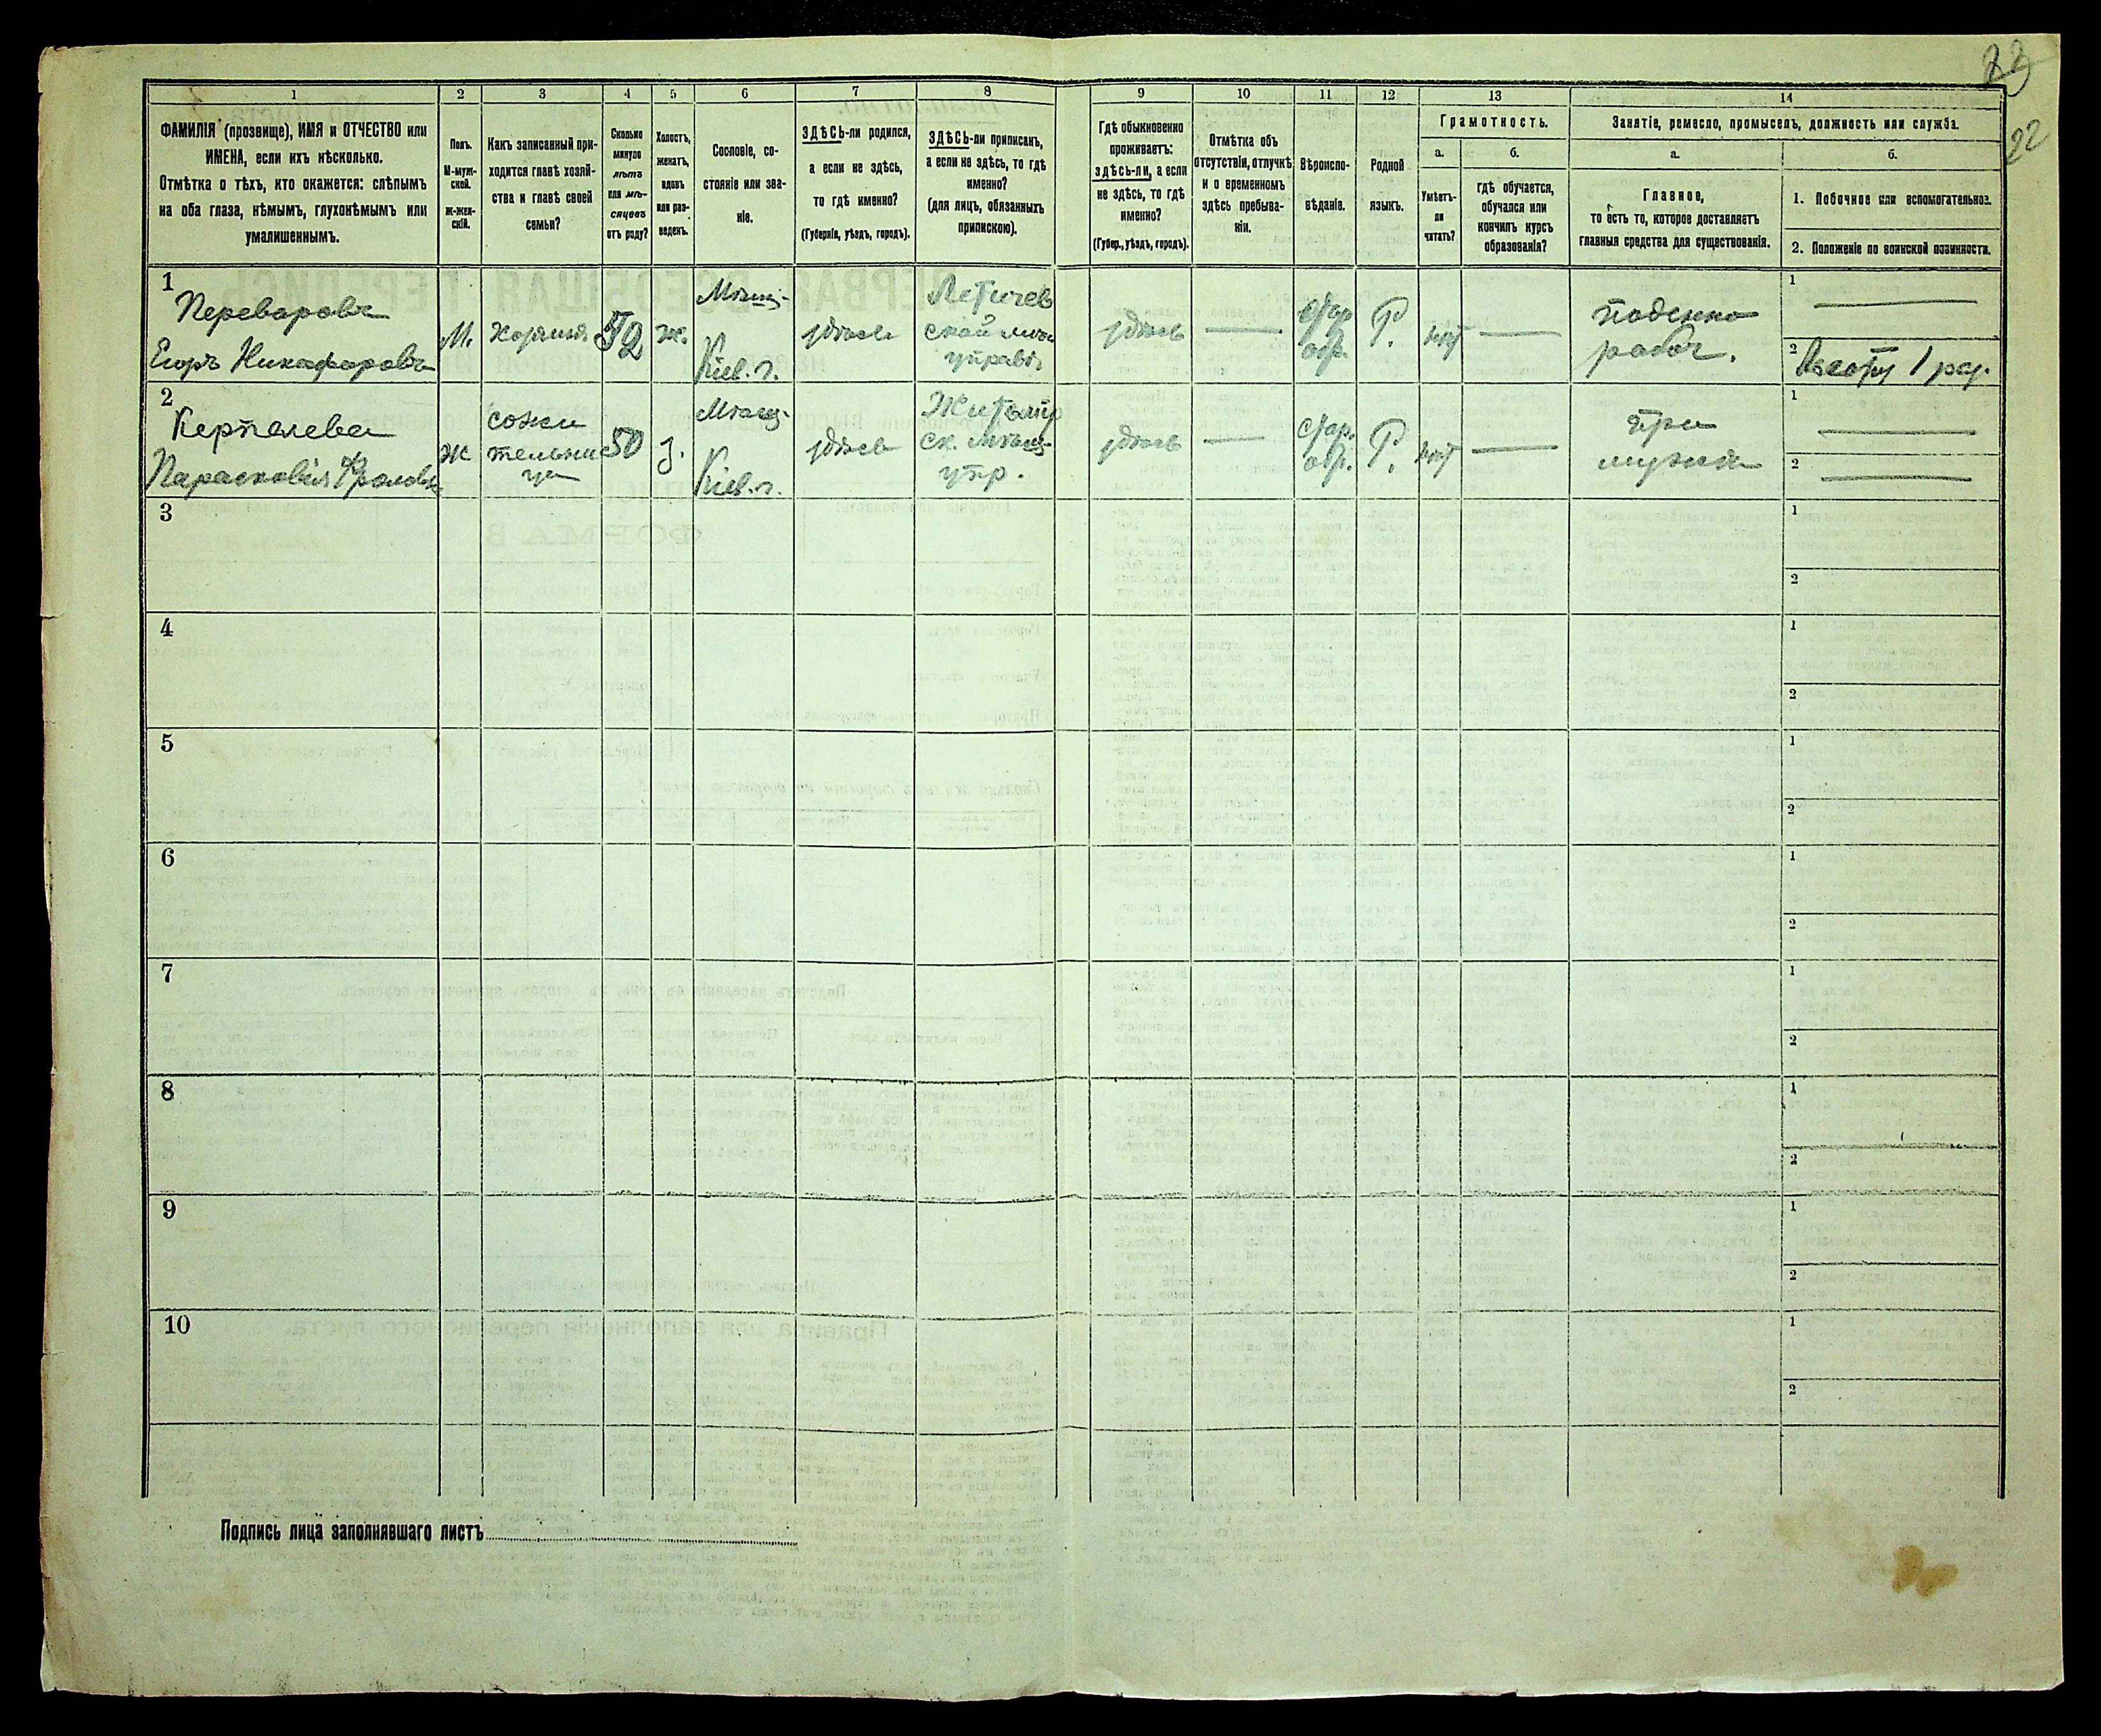 23
22
1
2
3
4
5
6
7
8
9
10
11
12
13
14
ФАМИЛІЯ (прозвище), ИМЯ и ОТЧЕСТВО или
ИМЕНА, если ихъ нѣсколько.
Отмѣтка о тѣхъ, кто окажется: слѣпымъ
на оба глаза, нѣмымъ, глухонѣмымъ или
умалишеннымъ.
Полъ.
М-муж-
ской.
ж-жен-
скій.
Какъ записанный при-
ходится главѣ хозяй-
ства и главѣ своей
семьи?
Сколько
минуло
лѣтъ
или мѣ-
сяцевъ
отъ роду?
Холостъ,
женатъ,
вдовъ
или раз-
веденъ.
Сословіе, со-
стояніе или зва-
ніе.
ЗДѢСЬ-ли родился,
а если не здѣсь,
то гдѣ именно?
(Губернія, уѣздъ, городъ).
ЗДѢСЬ-ли приписанъ,
а если не здѣсь, то гдѣ
именно?
(для лицъ, обязанныхъ
припискою).
Гдѣ обыкновенно
проживаетъ:
здѣсь-ли, а если
не здѣсь, то гдѣ
именно?
(Губер., уѣздъ, городъ).
Отмѣтка объ
отсутствіи, отлучкѣ
и о временномъ
здѣсь пребыва-
ніи.
Вѣроиспо-
вѣданіе.
Родной
языкъ.
Грамотность.
а.
Умѣетъ-
ли
читать?
б.
гдѣ обучается,
обучался или
кончилъ курсъ
образованія?
Занятіе, ремесло, промыселъ, должность или служба.
а.
Главное,
то есть то, которое доставляетъ
главныя средства для существованія.
б.
1. Побочное или вспомогательное.
2. Положеніе по воинской повинности.
1
Переваровъ
Егоръ Никафоровъ
М.
хозяинъ
52
ж.
Мѣщ-
Кіев. г.
здѣсь
Летичев
ской мѣщ
управѣ
здѣсь
стар
обр.
Р.
нѣт
поденно
рабоч.
1
2
1 раз.
2
Парасковія Фролов
ж
сожи
тельни
ца
50
з.
Мѣщ-
Кіев. г.
здѣсь
Житомір
ск. мѣщ-
упр.
здѣсь
стар.
обр.
Р.
нѣт
при
мужѣ
1
2
3
1
2
4
1
2
5
1
2
6
1
2
7
1
2
8
1
2
9
1
2
10
1
2
Подпись лица заполнявшаго листъ